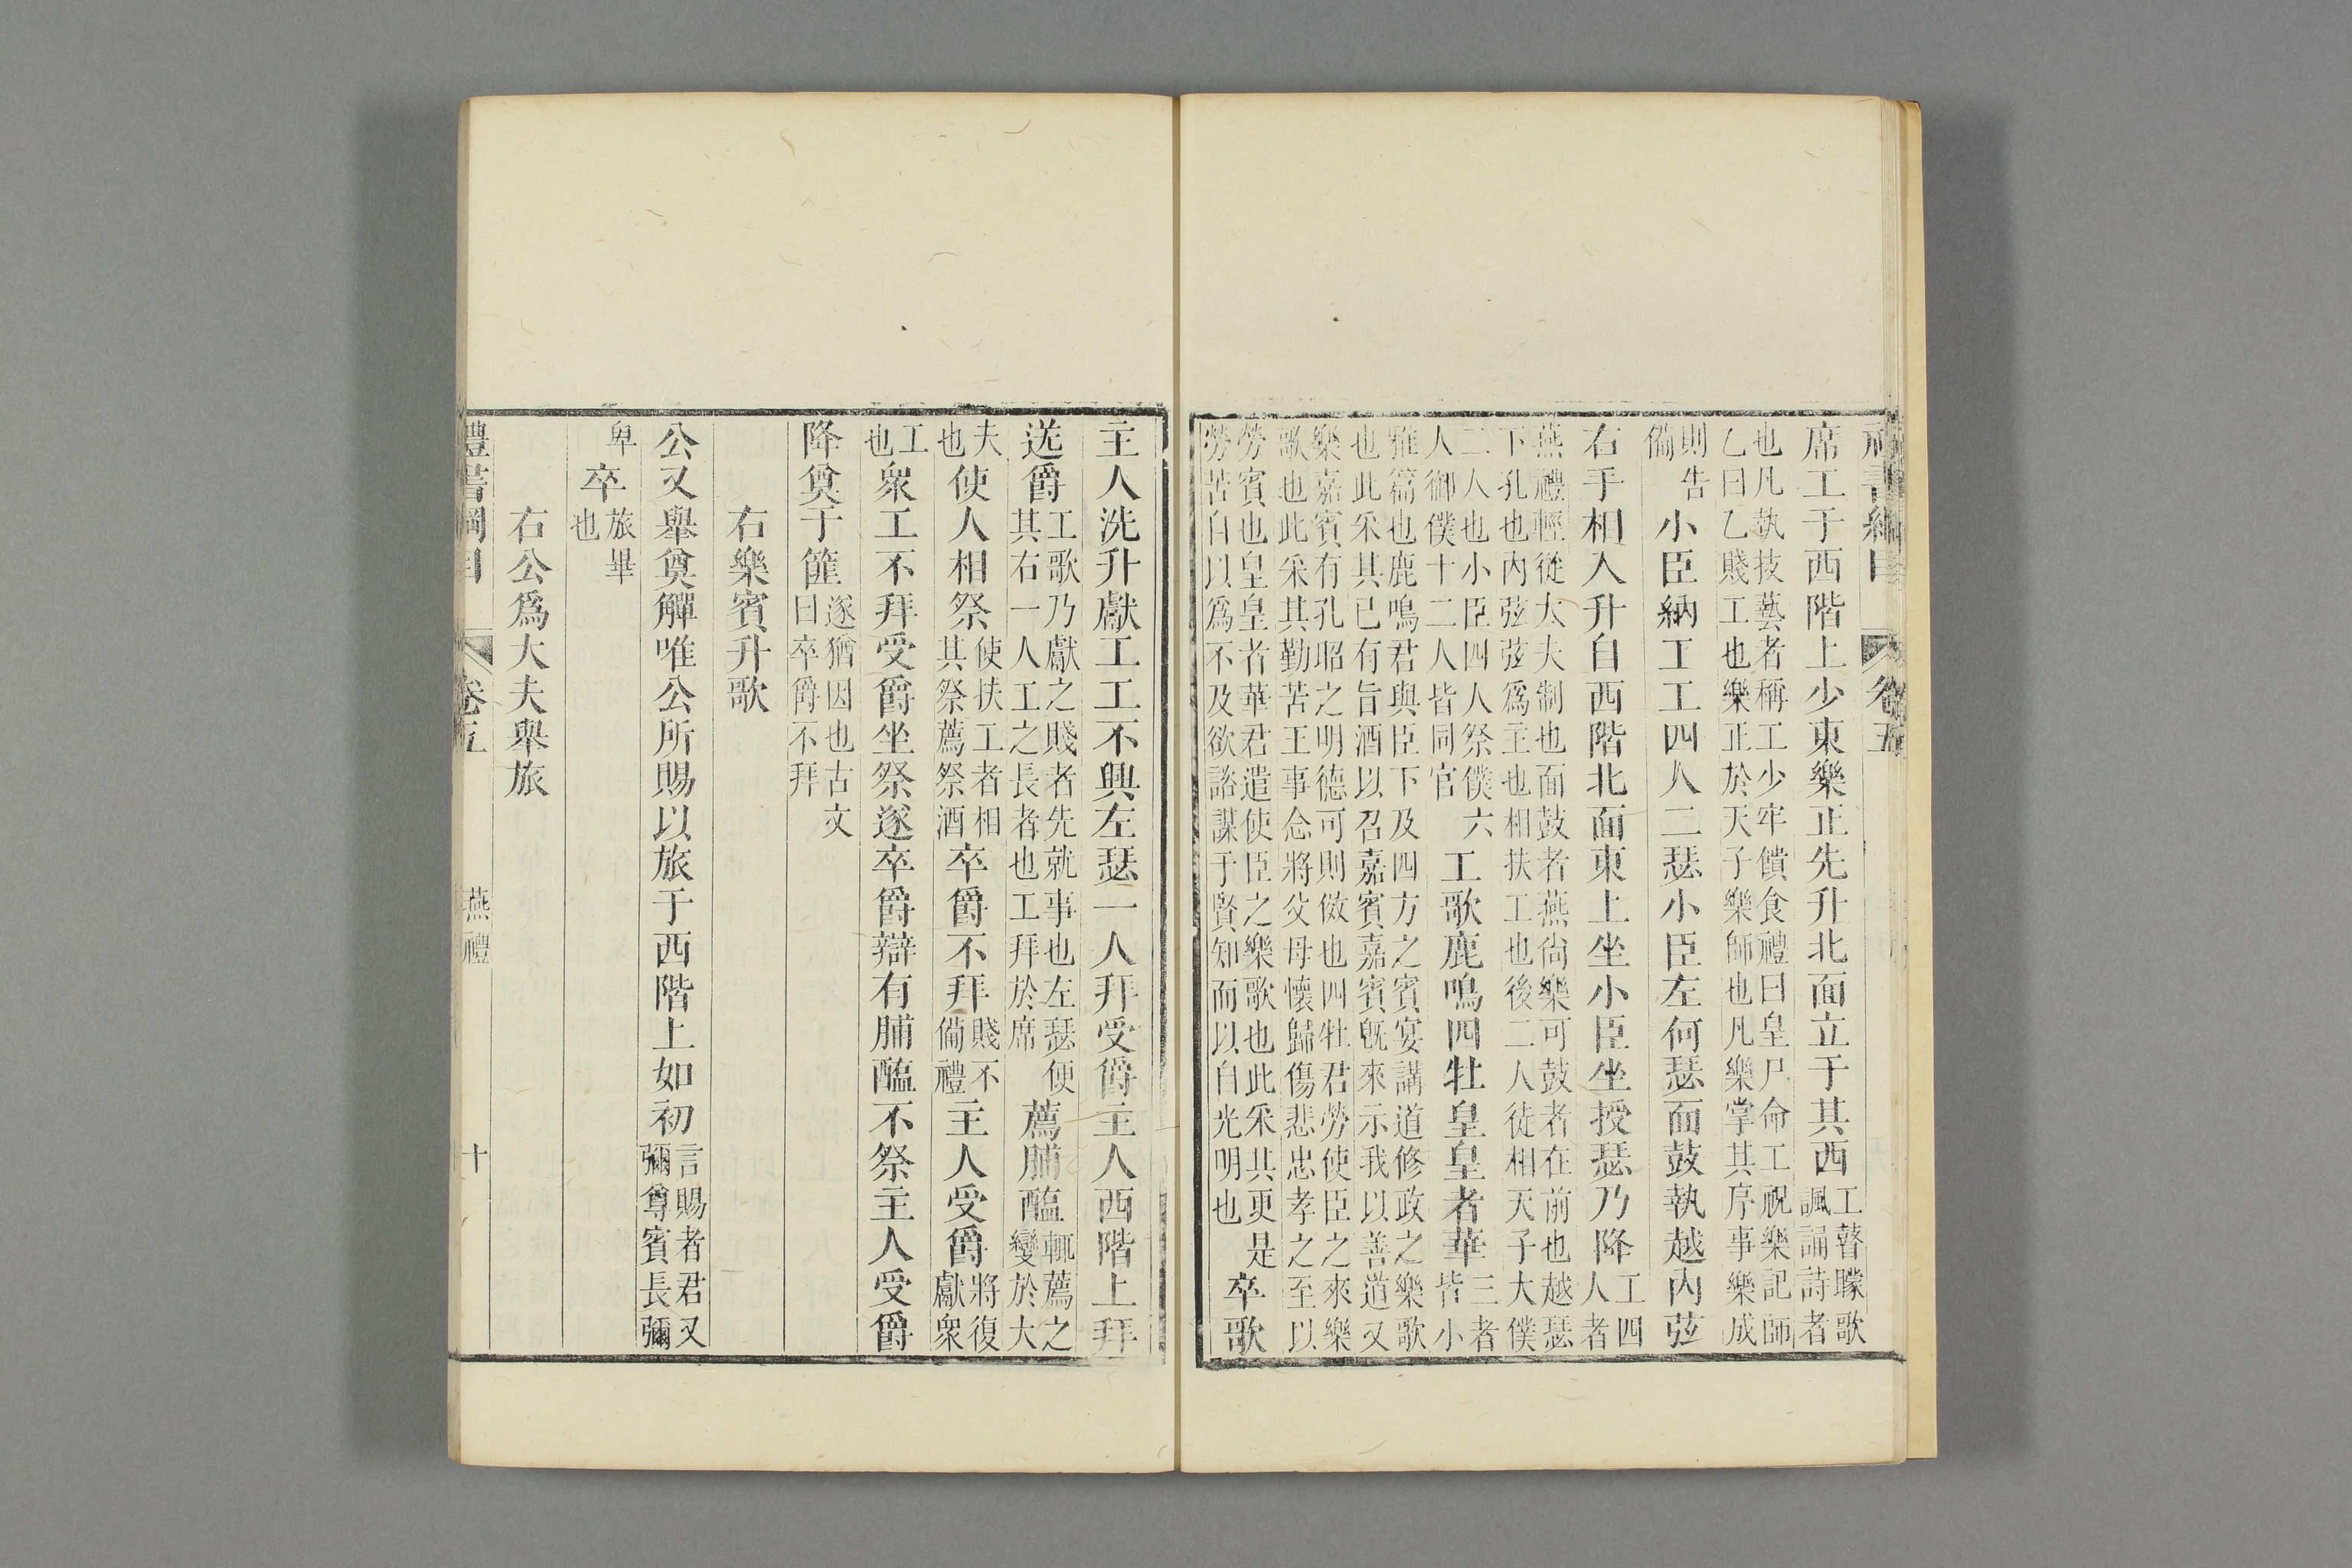 禮書綱目 卷五
席工于西階上少東樂正先升北面立于其西工瞽矇歌諷誦詩者
也凡執技藝者稱工少牢饋食禮曰皇尸命工祝樂記師乙曰乙賤工也樂正於天子樂師也凡樂掌其序事樂成
則告備小臣納工工四人二瑟小臣左何瑟面鼓執越內弦
右手相入升自西階北面東上坐小臣坐授瑟乃降工四人者
燕禮輕從大夫制也面鼓者燕尚樂可鼓者在前也越瑟下孔也內弦弦爲主也相扶工也後二人徒相天子大僕
二人也小臣四人祭僕六人御僕十二人皆同官工歌鹿鳴四牡皇皇者華三者皆小
雅篇也鹿鳴君與臣下及四方之賓宴講道修政之樂歌也此采其已有旨酒以召嘉賓嘉賓旣來示我以善道又
樂嘉賓有孔昭之明德可則傚也四牡君勞使臣之來樂歌也此采其勤苦王事念將父母懷歸傷悲忠孝之至以
勞賓也皇皇者華君遣使臣之樂歌也此采其更是勞苦自以爲不及欲諮謀于賢知而以自光明也卒歌
主人洗升獻工工不興左瑟一人拜受爵主人西階上拜
送爵工歌乃獻之賤者先就事也左瑟便其右一人工之長者也工拜於席薦脯醢輒薦之變於大
夫也使人相祭使扶工者相其祭薦祭酒卒爵不拜賤不備禮主人受爵將復獻衆
工也衆工不拜受爵坐祭遂卒爵辯有脯醢不祭主人受爵
降奠于篚遂猶因也古文曰卒爵不拜
右樂賓升歌
公又舉奠觶唯公所賜以旅于西階上如初言賜者君又彌尊賓長彌
卑卒旅畢也
右公爲大夫舉旅
禮書綱目 卷五 燕禮 十